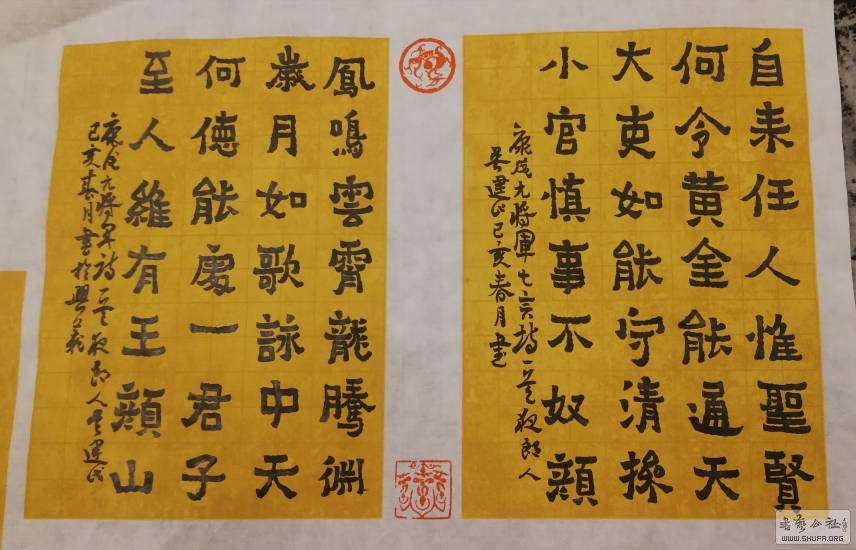 自来任人惟聖賢
何令黄金能通天
大吏如能守清操
小官慎事不奴顔
庚戌九将軍七言詩一首夜郎人
吴建民己亥春月書
鳳鳴雲霄龍騰渊
歳月如歌詠中天
何德能處一君子
至人維有王顔山
庚戌九将軍詩一首夜郎人吴建民
己亥春月書於興義
WWW.SHUFA.ORG